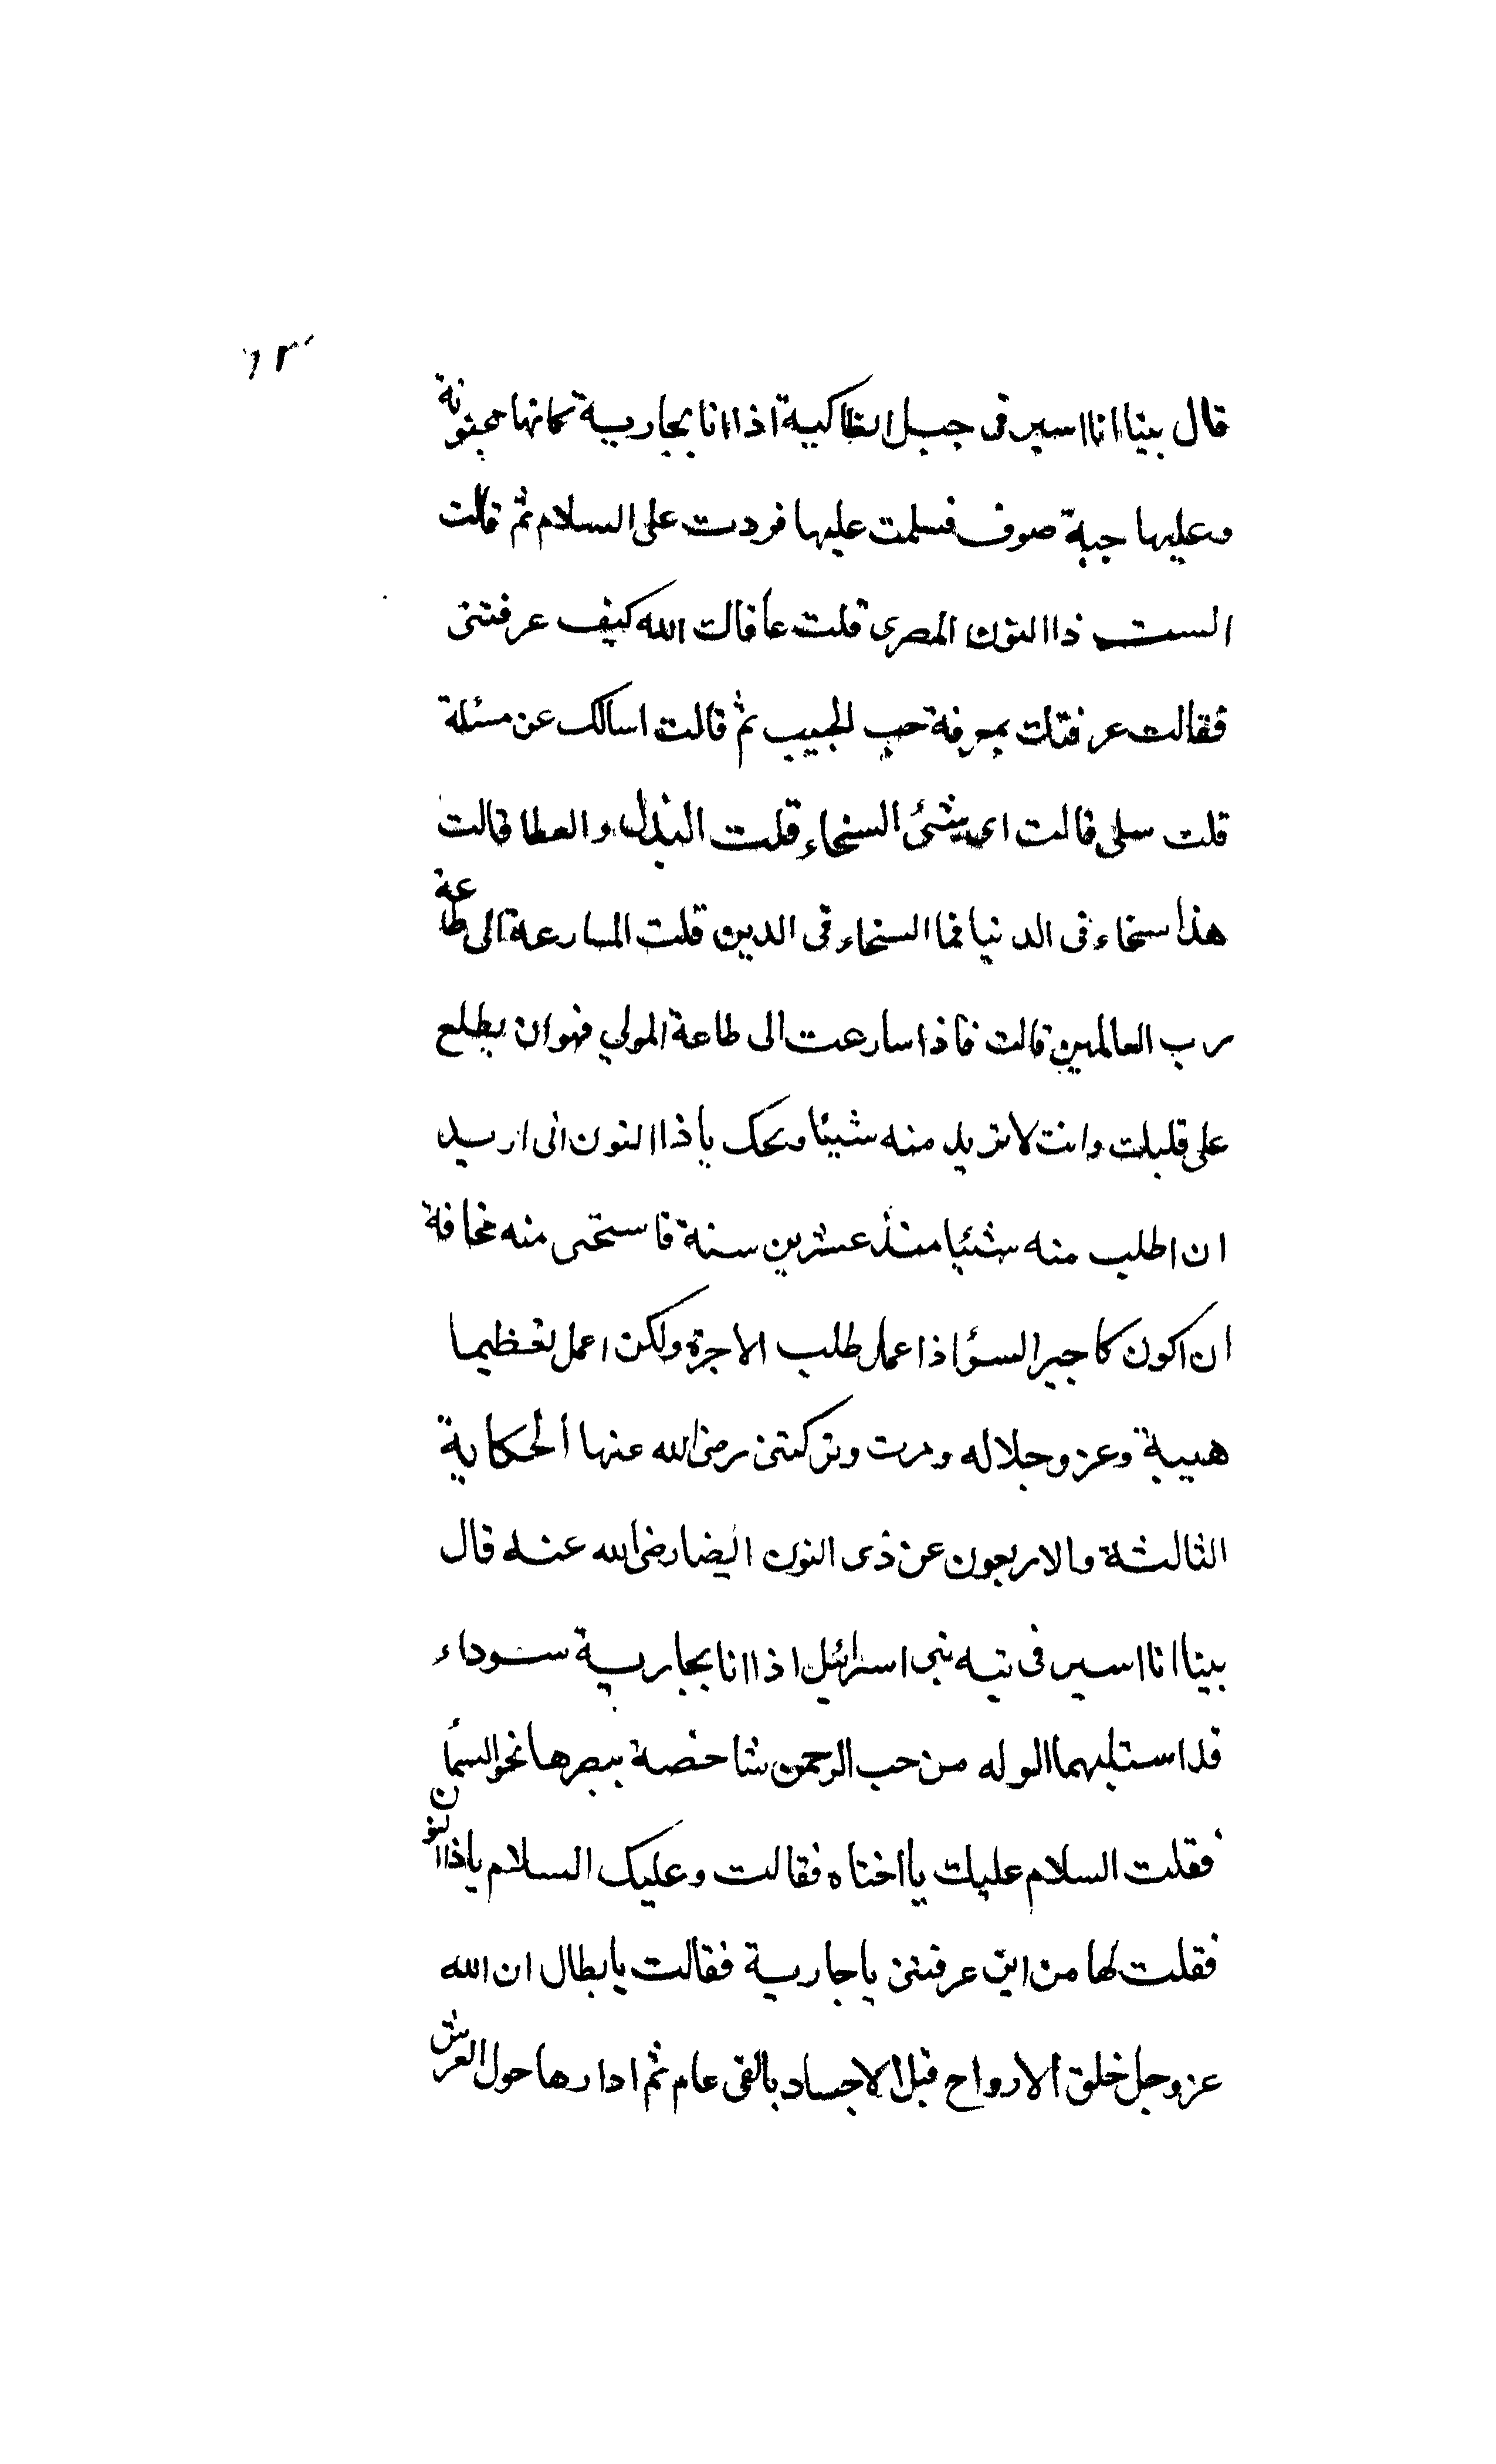 ٦٢
قال بينا انا اسير فى جبل انطاكية اذا انا بجارية كانها مجنونة
وعليها جبة صوف فسلمت عليها فردت على السلام ثم قالت
الست ذا النون المصرى قلت عافاك الله كيف عرفتنى
فقالت عرفتك بمعرفة حب الحبيب ثم قالت اسالك عن مسئلة
قلت سلى قالت اى شئ السخاء قلت البذل والعطا قالت
هذا سخاء فى الدنيا فما السخاء فى الدين قلت المسارعة الى طاعة
رب العالمين قالت فاذا سارعت الى طاعة المولى فهو ان يطلع
على قلبك وانت لا تريد منه شيئا ويحك يا ذا النون انى اريد
ان اطلب منه شيئا منذ عشرين سنة فاستحى منه مخافة
ان اكون كاجير السوء اذا عمل طلب الاجرة ولكن اعمل تعظيما
هيبة وعز وجلاله ومرت وتركتنى رضى الله عنها الحكاية
الثالثة والاربعون عن ذى النون ايضا رضى الله عنه قال
بينا انا اسير فى تيه بنى اسرائيل اذا انا بجارية سوداء
قد استلبها الوله من حب الرحمن شاخصة ببصرها نحو السما
فقلت السلام عليك يا اختاه فقالت وعليك السلام يا ذا النون
فقلت لها من اين عرفتنى يا جارية فقالت يا بطال ان الله
عز وجل خلق الارواح قبل الاجساد بالفى عام ثم ادارها حول العرش